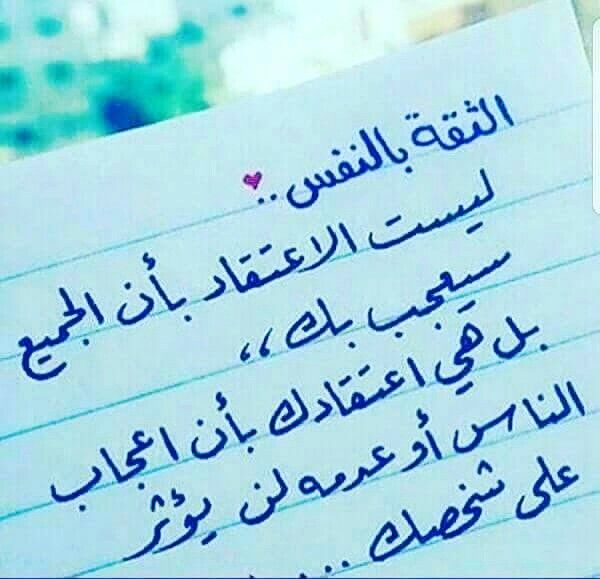 الثقة بالنفس..
ليست الاعتقاد بأن الجميع
سيعجب بك،،
بل هي اعتقادك بأن اعجاب
الناس أو عدمه لن يؤثر
على شخصك ....